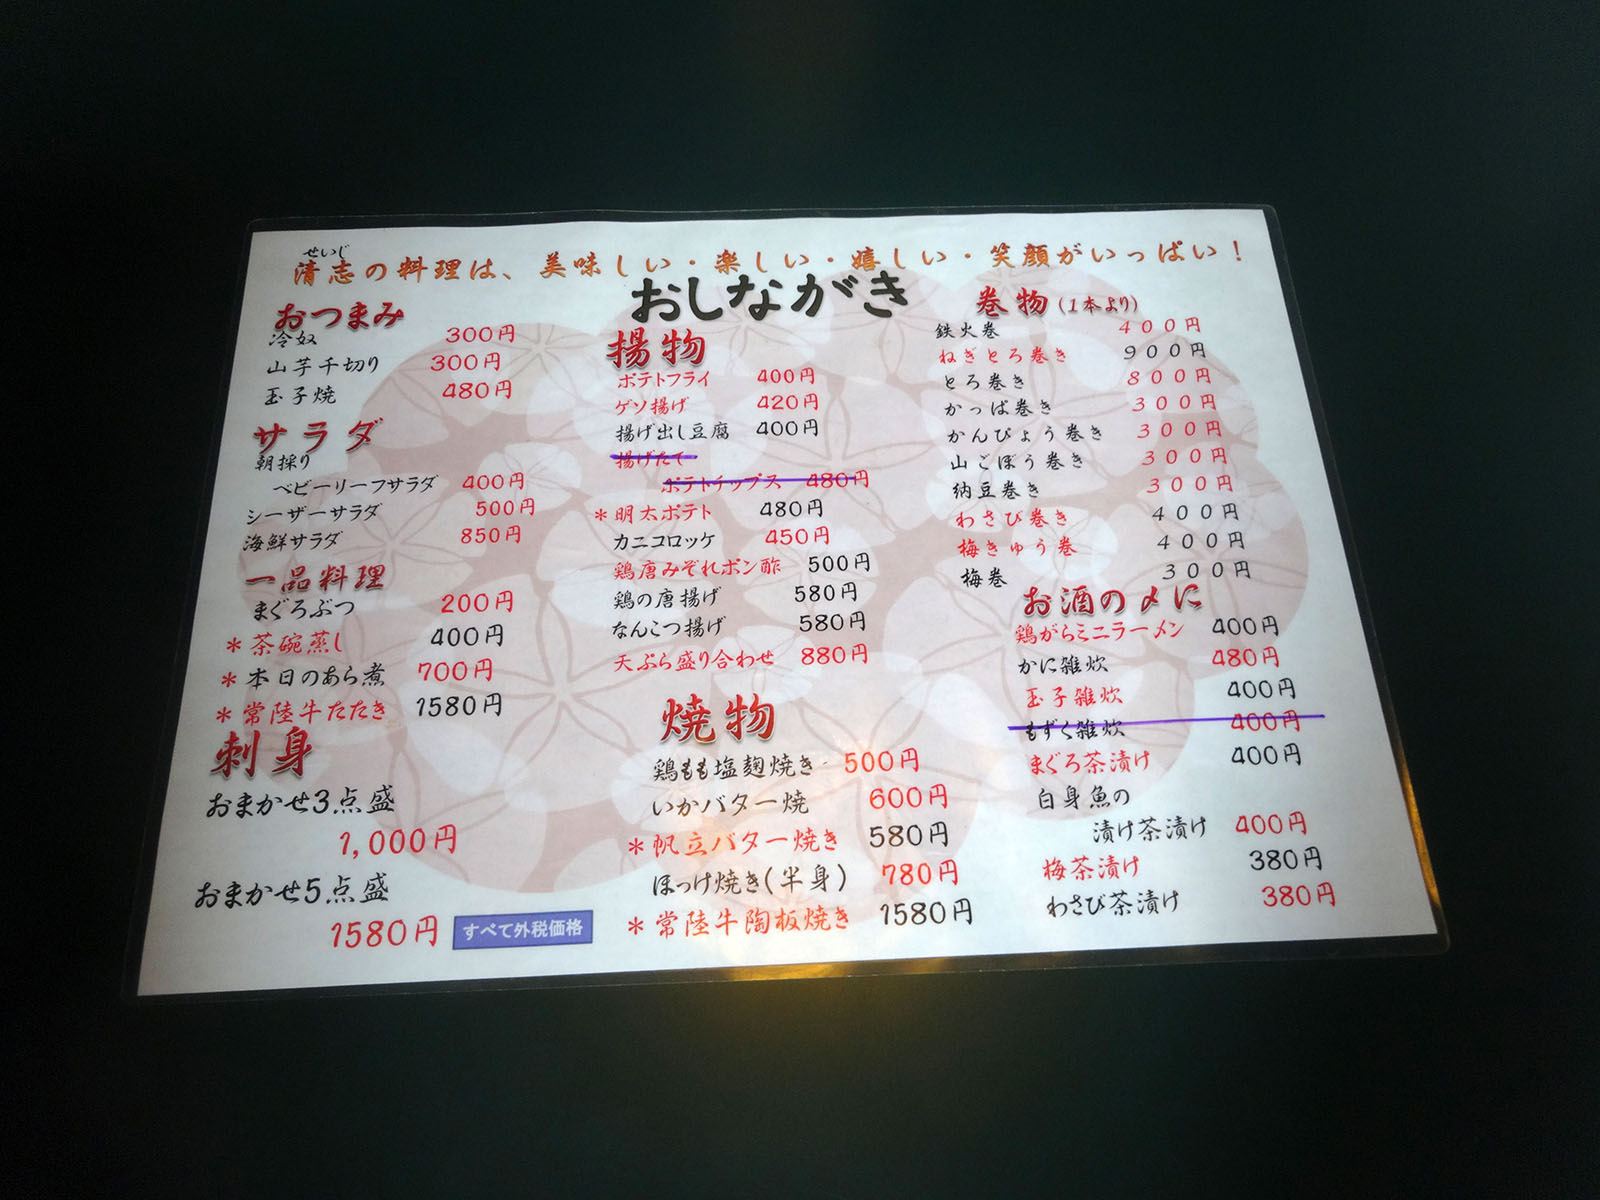 せいじ
清志の料理は、美味しい・楽しい・嬉しい・笑顔がいっぱい！
おしながき
おつまみ
冷奴 300円
山芋千切り 300円
玉子焼 480円
サラダ
朝採り
ベビーリーフサラダ 400円
シーザーサラダ 500円
海鮮サラダ 850円
一品料理
まぐろぶつ 200円
＊茶碗蒸し 400円
＊本日のあら煮 700円
＊常陸牛たたき 1580円
刺身
おまかせ3点盛
1,000円
おまかせ5点盛
1580円
すべて外税価格
揚物
ポテトフライ 400円
ゲソ揚げ 420円
揚げ出し豆腐 400円
揚げたて
ポテトチップス 480円
＊明太ポテト 480円
カニコロッケ 450円
鶏唐みぞれポン酢 500円
鶏の唐揚げ 580円
なんこつ揚げ 580円
天ぷら盛り合わせ 880円
焼物
鶏もも塩麹焼き 500円
いかバター焼 600円
＊帆立バター焼き 580円
ほっけ焼き(半身) 780円
＊常陸牛陶板焼き 1580円
巻物(1本より)
鉄火巻 400円
ねぎとろ巻き 900円
とろ巻き 800円
かっぱ巻き 300円
かんぴょう巻き 300円
山ごぼう巻き 300円
納豆巻き 300円
わさび巻き 400円
梅きゅう巻 400円
梅巻 300円
お酒の〆に
鶏がらミニラーメン 400円
かに雑炊 480円
玉子雑炊 400円
もずく雑炊 400円
まぐろ茶漬け 400円
白身魚の
漬け茶漬け 400円
梅茶漬け 380円
わさび茶漬け 380円